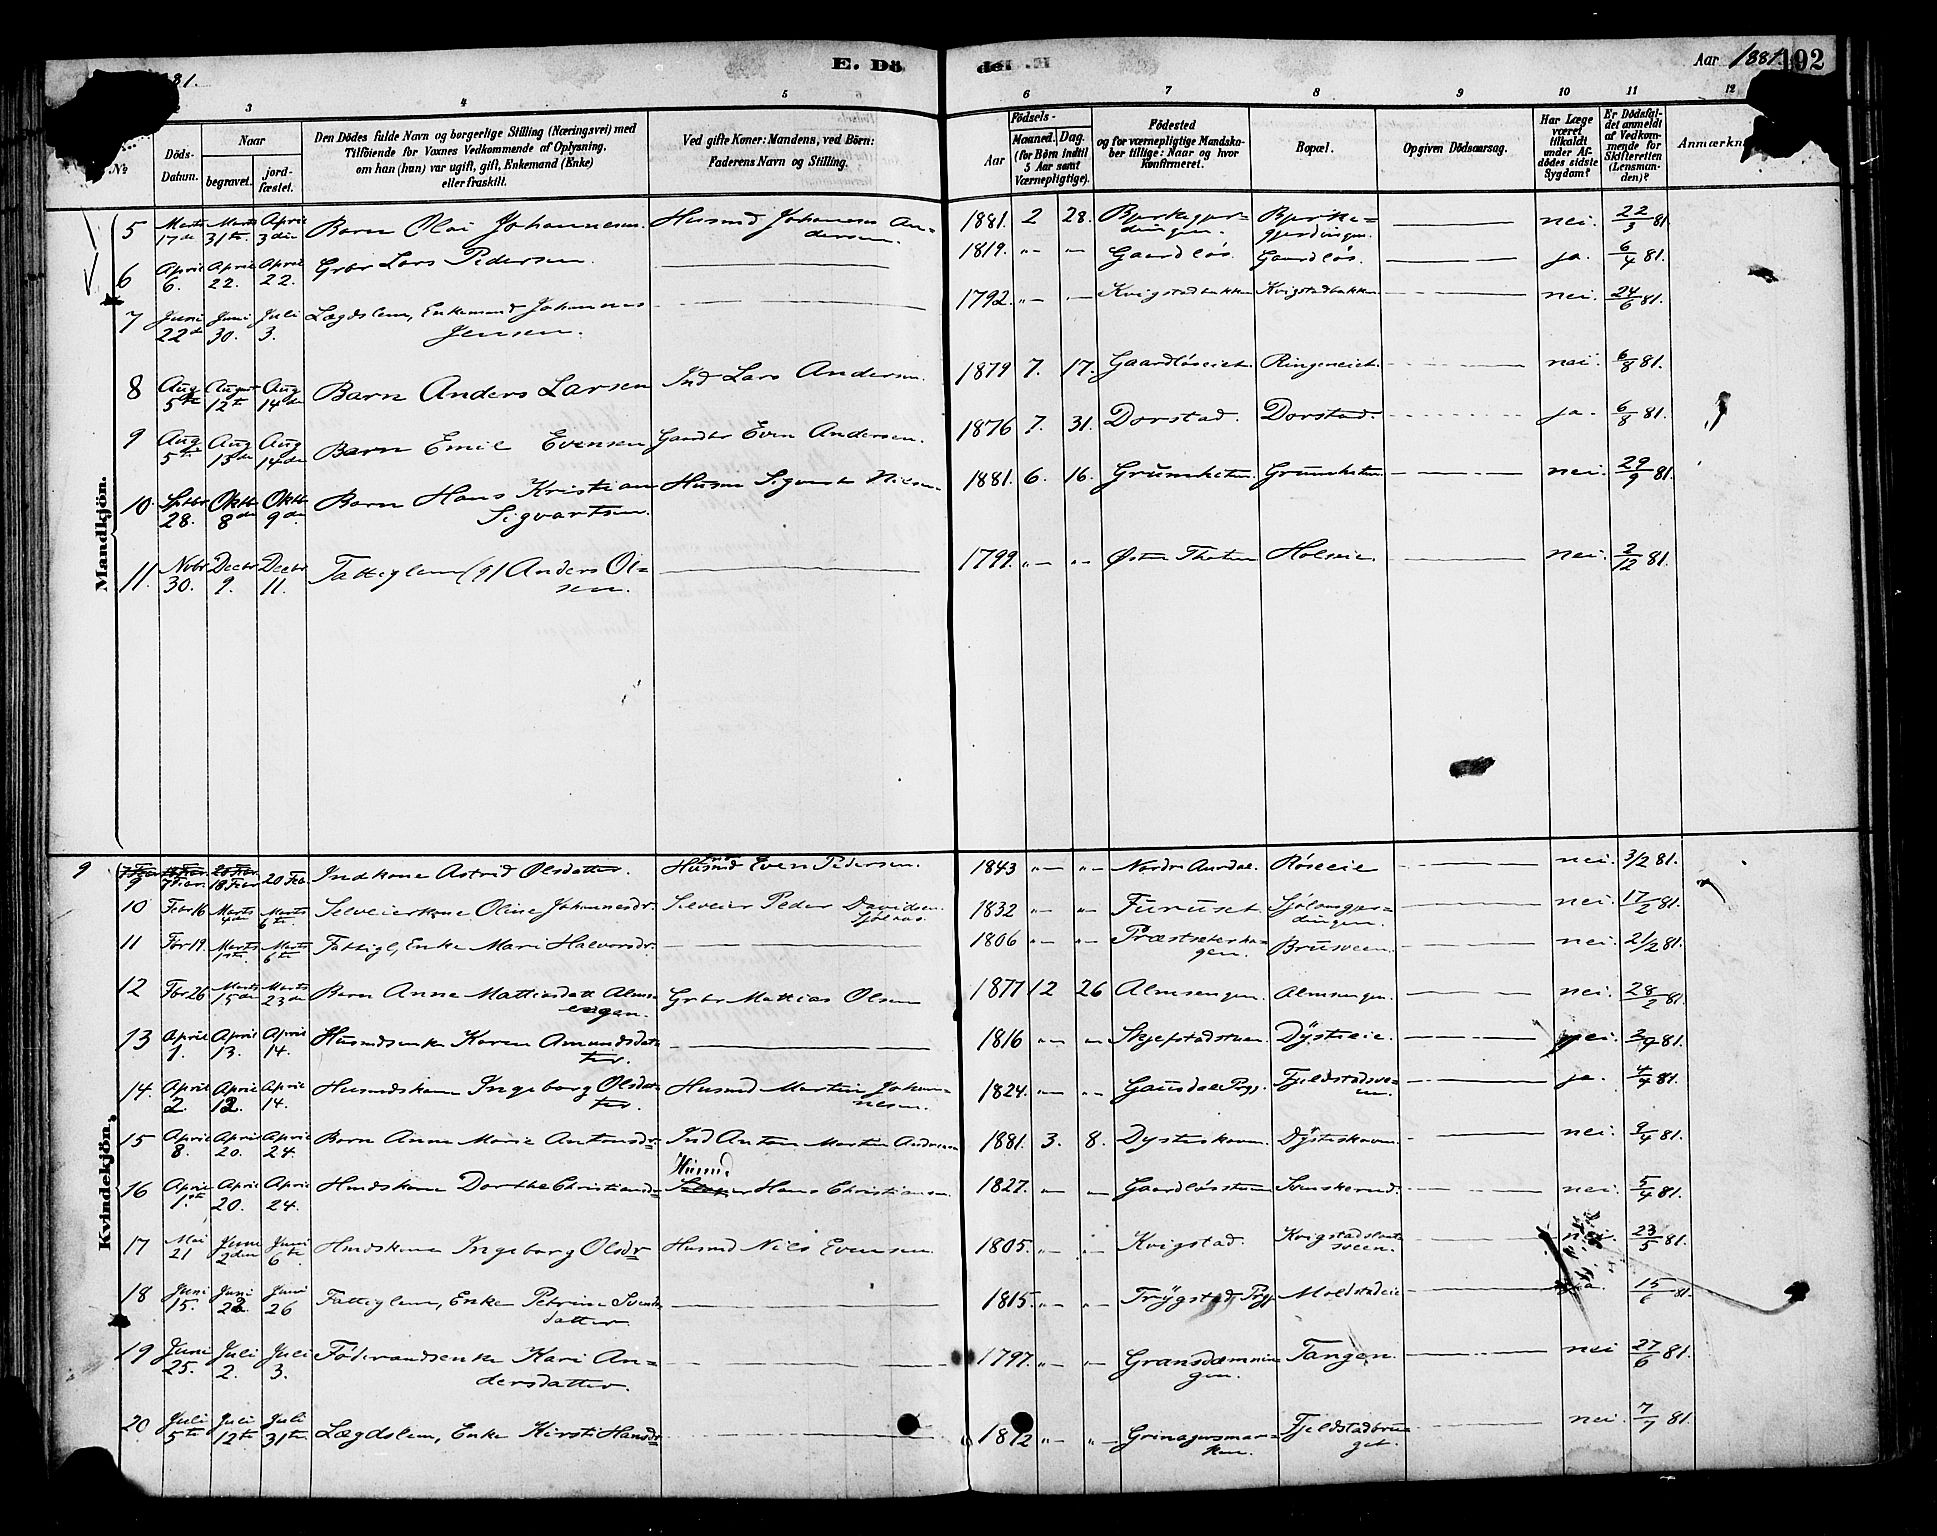 81.
E. Dö
de
Aar 1881. 192
3 4 5 6 7 8 9 10 11 12
No
Döds-Datum.
Naar
begravet.
jord-fæstet.
Den Dödes fulde Navn og borgerlige Stilling (Næringsvei) med
Tilföiende for Voxnes Vedkommende af Oplysning,
om han (hun) var ugift, gift, Enkemand (Enke)
eller fraskilt.
Ved gifte Koner: Mandens, ved Börn:
Faderens Navn og Stilling.
Födsels-
Aar
Maaned. Dag.
(for Börn indtil
5 Aar samt
Værnepligtige).
Födested
og for værnepligtige Mandska-
ber tillige: Naar og hvor
Konfirmeret.
Bopæl.
Opgiven Dödsaarsag.
Har Læge
været
tilkaldt
under Af-
dödes sidste
Sygdom?
Er Dödsfal-
det anmeldt
af Vedkom-
mende for
Skifteretten
(Lensman-
den)?
Anmærkn
Mandkjön.
5 Marts 17de Marts 31te April 3die Barn Olai Johannesen Husmd Johannes Andersen. 1881. 2 28. Bjerkegjerdingen. Bjerkegjerdingen. nei. 22/3 81.
6 April 6. April 22. April 22. Grbr Lars Pedersen. 1819. Gaardløs. Gaardløs. ja. 6/4 81.
7 Juni 22de Juni 30. Juli 3. Lægdslem, Enkemand Johannes Jensen. 1792. Kvigstadbakken Kvigstadbakken nei. 24/6 81.
8 Aug 5te August 12te Aug 14de Barn Anders Larsen Ind Lars Andersen. 1879 7. 17. Gaardløseiet. Ringeneiet. nei. 6/8 81.
9 Aug 5te Aug 13de Aug 14de Barn Emil Evensen Gaardbr Even Andersen. 1876 7. 31. Dorstad. Dorstad. ja. 6/8 81.
10. Septbr 28. Oktbr 8de Oktbr 9de Barn Hans Kristian Sigvartsen. Husm Sigvart Nilsen 1881. 6. 16. Grumketun Grumketun nei. 29/9 81.
11. Novbr 30. Decbr 9. Decbr 11. Fattiglem (g) Anders Olsen. 1799. Østre Thoten Holseie. nei. 2/12 81.
Kvindekjön.
9 7 Febr. 18 Febr 20 Feb. Indkone Astrid Olsdatter. Even Pedersen. 1843 Nordre Aurdal. Røseeie nei. 3/2 81.
10 Febr 16 Marts 4de Marts 6te Selveierkone Oline Johannesdr. Selveier Peder Davidsen Sjølaas. 1832 Furuset. Sjølaasgjerdingen. nei. 17/2 81.
11 Febr 19. Marts 1ste. Marts 6te Fattigl, Enke Mari Halvorsdr. 1806 Præstsæterhagen. Brusveen. nei. 21/2 81.
12 Febr 26 Marts 15de Marts 23de Barn Anne Mathiasdatt Almsengen. Grbr Mathias Olsen 1877 12 26 Almsengen. Almsengen. nei. 28/2 81.
13 April 1. April 13. April 14. Husmdsenke Karen Amundsdatter. 1816 Skjefstadstuen. Dysteeie. nei. 81.
14. April 2. April 12. April 14. Husmdskone Ingeborg Olsdatter. Husmd Martin Johannesen. 1824. Gausdal Prgj. Fjeldstadsveen ja. 4/4 81.
15 April 8. April 20. April 24. Barn Anne Marie Antonsdr. Ind Anton Martin Andersen 1881. 3. 8. Dysteskoven. Dysteskoven. nei. 9/4 81.
16 April 1ste April 20. April 24. Hmdskone Dorthe Christiansdr Husmd Hans Christiansen. 1827. Gaardløsstuen Svenskerud. nei. 5/4 81.
17 Mai 21 Juni 2den Juni 6te Hmdskone Ingeborg Olsdr Husmd Nils Evensen. 1805. Kvigstad. nei. 23/5 81.
18 Juni 15. Juni Juni 26 Fattiglem, Enke Petrine Svendsdatter 1815. Trygstad Prgj. Moldstadeie ja. 15/6 81.
19 Juni 25. Juli 2. Juli 3. Føderaadsenke Kari Andersdatter. 1797. Gransdæmningen. Tangen. nei 27/6 81.
20 Juli 5te Juli 12te Juli 31te Lægdslem, Enke Kirsti Hansdr 1812 Grinagersmarken. Fjeldstadbruget. nei. 7/7 81.